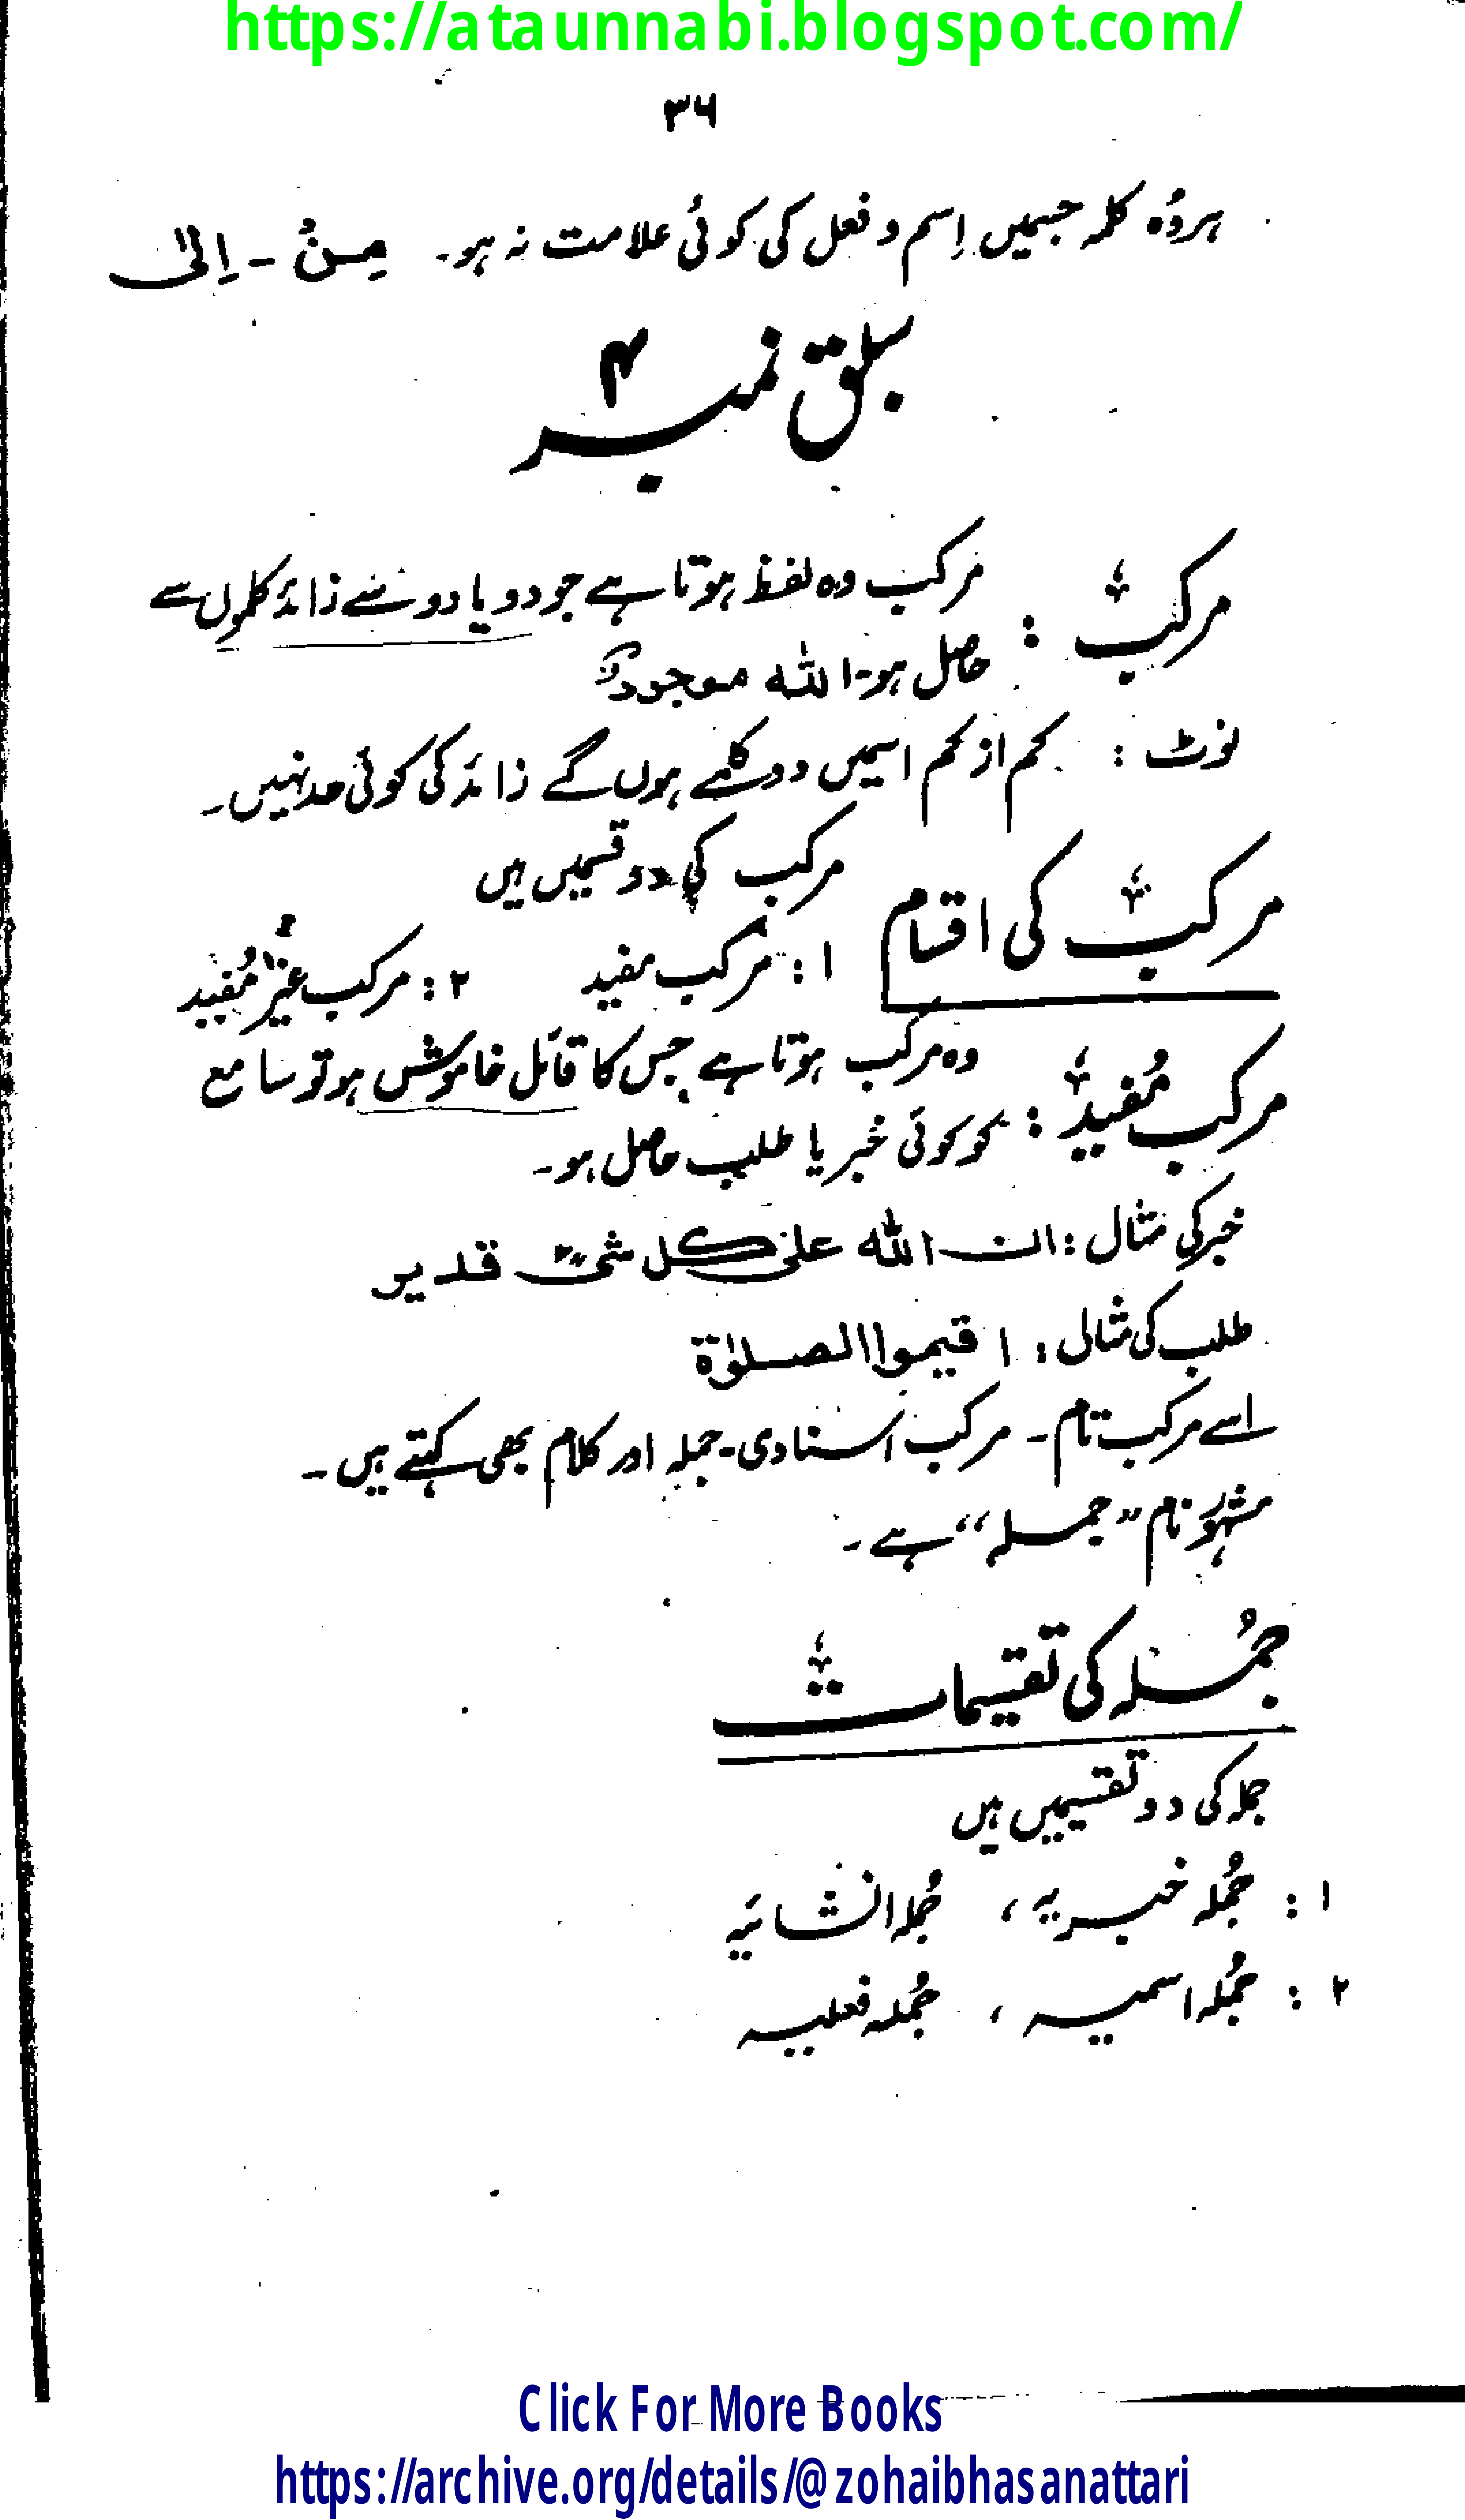 https://ataunnabi.blogspot.com/
۳۶
ہر وُہ کلمہ جسمیں اِسم و فعل کی کوئی علامت نہ ہو۔ مِنْ ۔ اِلٰی
سبق نمبر ۴
مرکب : مرکب وہ لفظ ہوتا ہے جو دو یا دو سے زائد کلموں سے
حاصل ہو۔ اللہ موجودٌ
نوٹ : کم از کم اسمیں دو کلمے ہوں گے زائد کی کوئی حد نہیں۔
مرکب کی اقسام مرکب کی دو قسمیں ہیں
۱: مرکب مفید ۲: مرکب غیر مُفید
مرکب مُفید : وہ مرکب ہوتا ہے جس کا قائل خاموش ہو تو سامع
کو کوئی خبر یا طلب حاصل ہو۔
خبر کی مثال : ان اللہ علیٰ کل شیٔ قدیر
طلب کی مثال : اقیموا الصلوٰة
اسے مرکب تام ۔ مرکب اسنادی ۔ جملہ اور کلام بھی کہتے ہیں ۔
مشہور نام ”جملہ“ ہے ۔
جُملہ کی تقسیمات
جملہ کی دو تقسیمیں ہیں
۱ : جُملہ خبریہ ، جُملہ انشائیہ
۲ : جُملہ اسمیہ ، جُملہ فعلیہ
Click For More Books
https://archive.org/details/@zohaibhasanattari